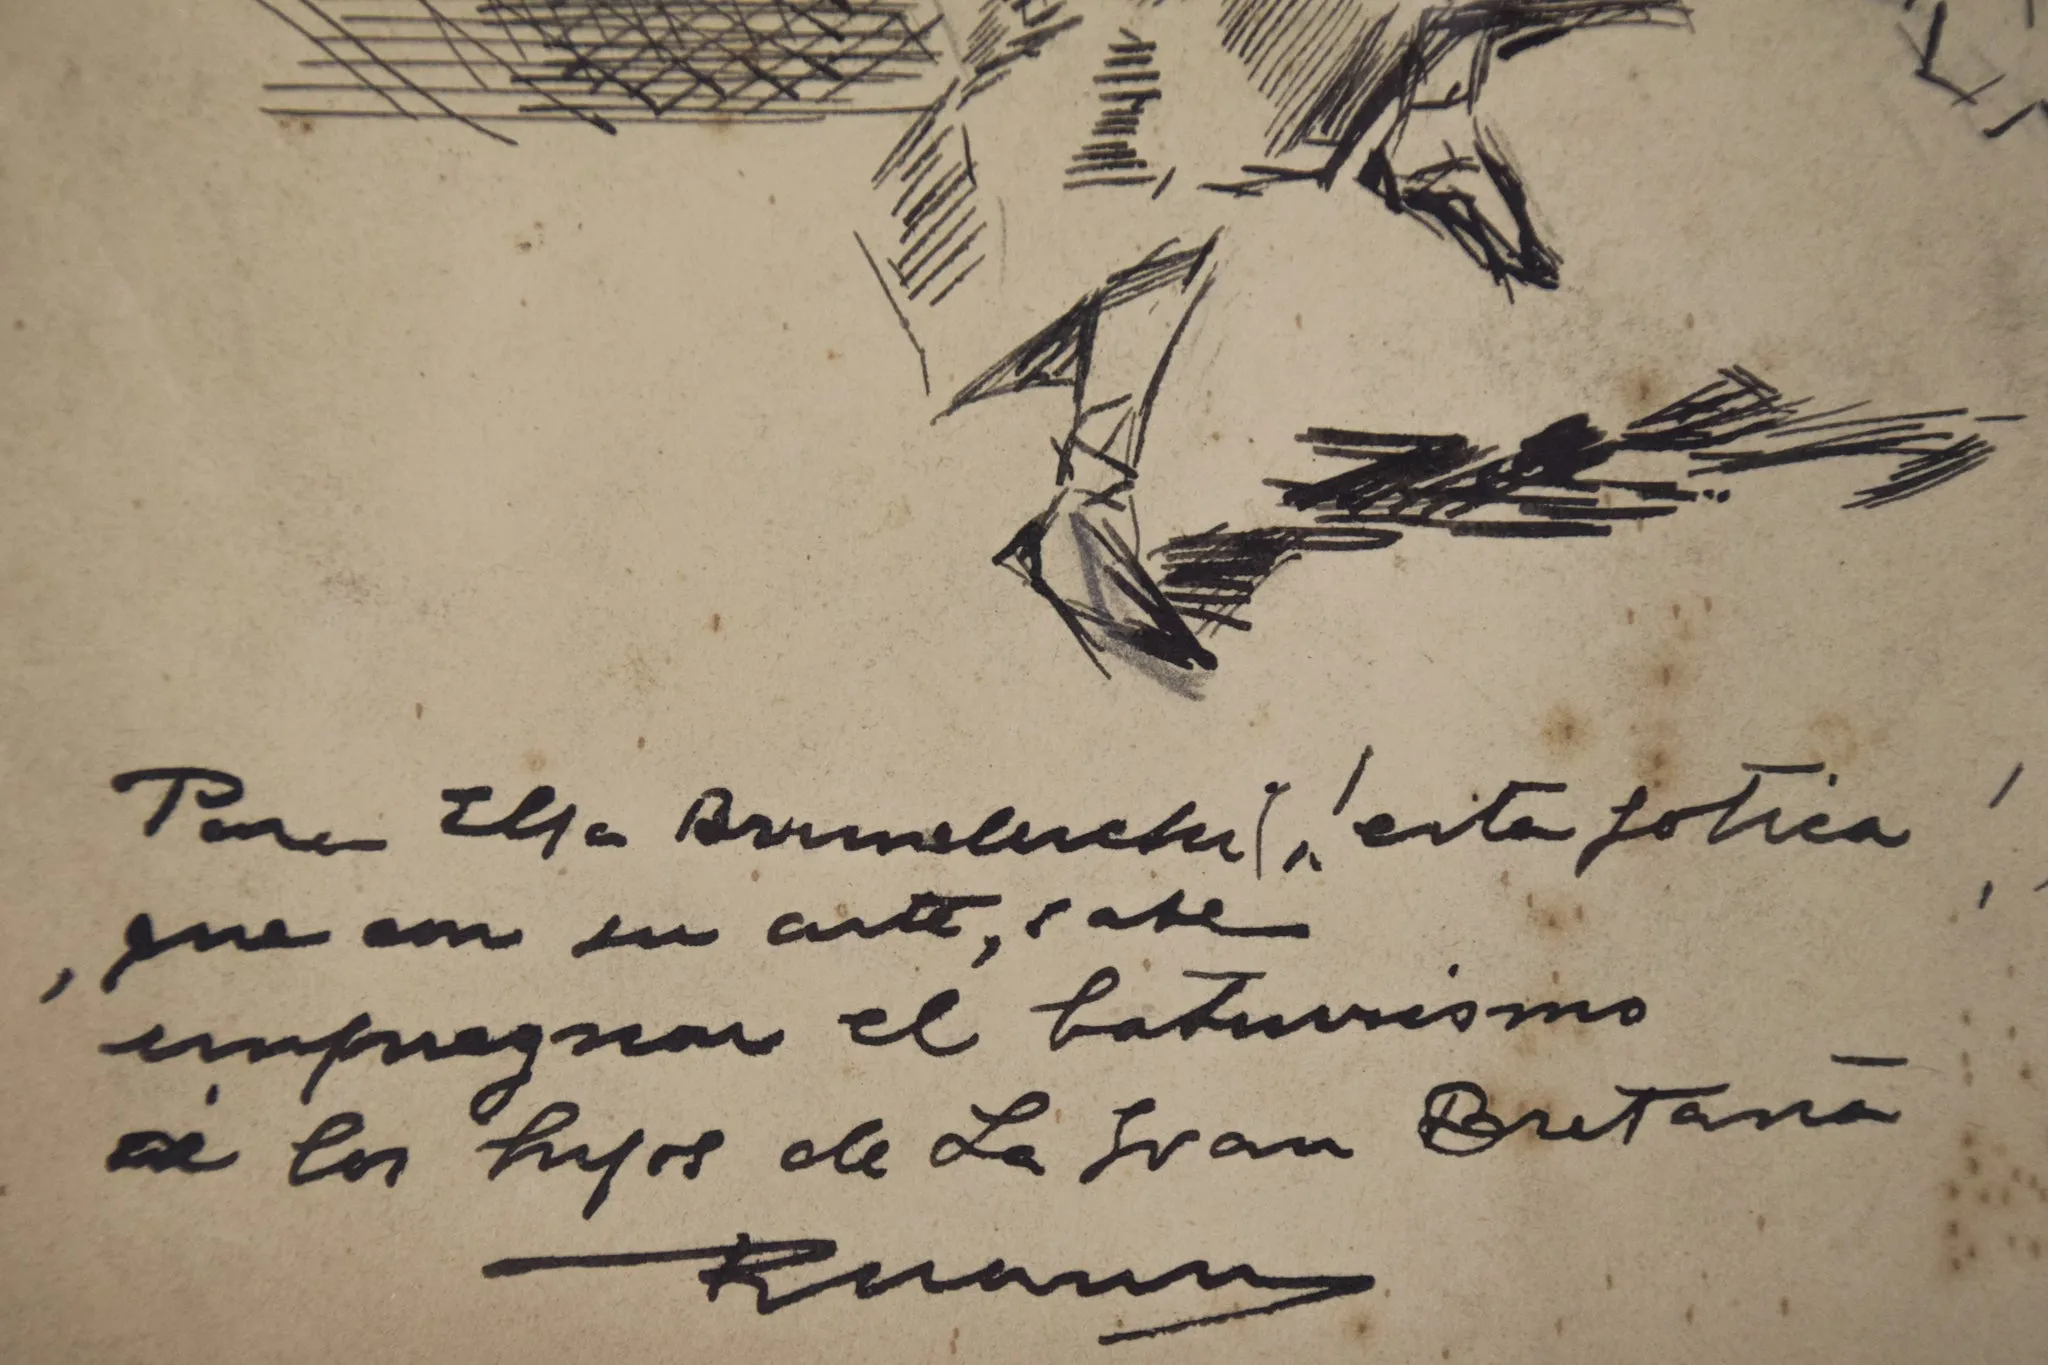 Para Elsa Brunelleschi, ¡esta jotica!
que con su arte, sabe
impregnar el baturrismo
a los hijos de La Gran Bretaña